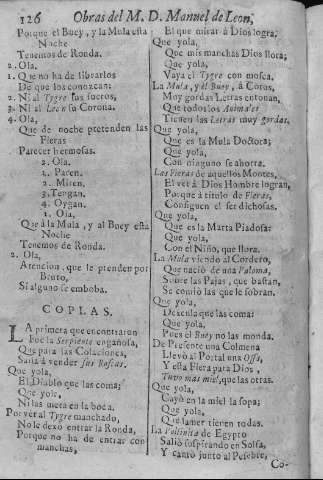 126 Obras del M. D. Manuel de Leon,
Porque el Buey, y la Mula esta
Noche
Tenemos de Ronda.
2. Ola.
1. Que no ha de librarlos
De que los conozcan:
2. Ni al Tygre sus fueros,
3. Ni al Leon su Corona.
4. Ola,
Que de noche pretenden las
Fieras
Parecer hermosas.
2. Ola.
1. Paren.
2. Miren.
3. Tengan.
4. Oygan.
1. Ola,
Que à la Mula, y al Buey esta
Noche
Tenemos de Ronda.
2. Ola,
Atencion, que le prenden por
Bruto,
Si alguno se emboba.
COPLAS.
LA primera que encontraron
Fue la Serpiente engañosa,
Que para las Colaciones,
Salia à vender sus Roscas.
Que yola,
El Diablo que las coma;
Que yole,
Ni las meta en la boca.
Por vèr al Tygre manchado,
No le dexò entrar la Ronda,
Porque no ha de entrar con
manchas,
El que mirar à Dios logra;
Que yola,
Que mis manchas Dios llora;
Que yola,
Vaya el Tygre con mosca.
La Mula, y el Buey, à Coros,
Muy gordas Letras entonan,
Que todos los Animales
Tienen las Letras muy gordas.
Que yola,
Que es la Mula Doctora;
Que yola,
Con ninguno se ahorra.
Las Fieras de aquellos Montes,
El vèr à Dios Hombre logran,
Porque à titulo de Fieras,
Consiguen el ser dichosas.
Que yola,
Que es la Marta Piadosa;
Que yola,
Con el Niño, que llora.
La Mula viendo al Cordero,
Que naciò de una Paloma,
Sobre las Pajas, que bastan,
Se comiò las que le sobran.
Que yola,
Descuda que las coma;
Que yola,
Pues el Buey no las monda.
De Presente una Colmena
Llevò al Portal una Ossa,
Y esta Fiera para Dios,
Tuvo mas miel, que las otras.
Que yola,
Cayò en la miel la sopa;
Que yola,
Que lamer tienen todas.
La Pollinita de Egypto
Saliò suspirando en Solfa,
Y cantò junto al Pesebre,
Co-